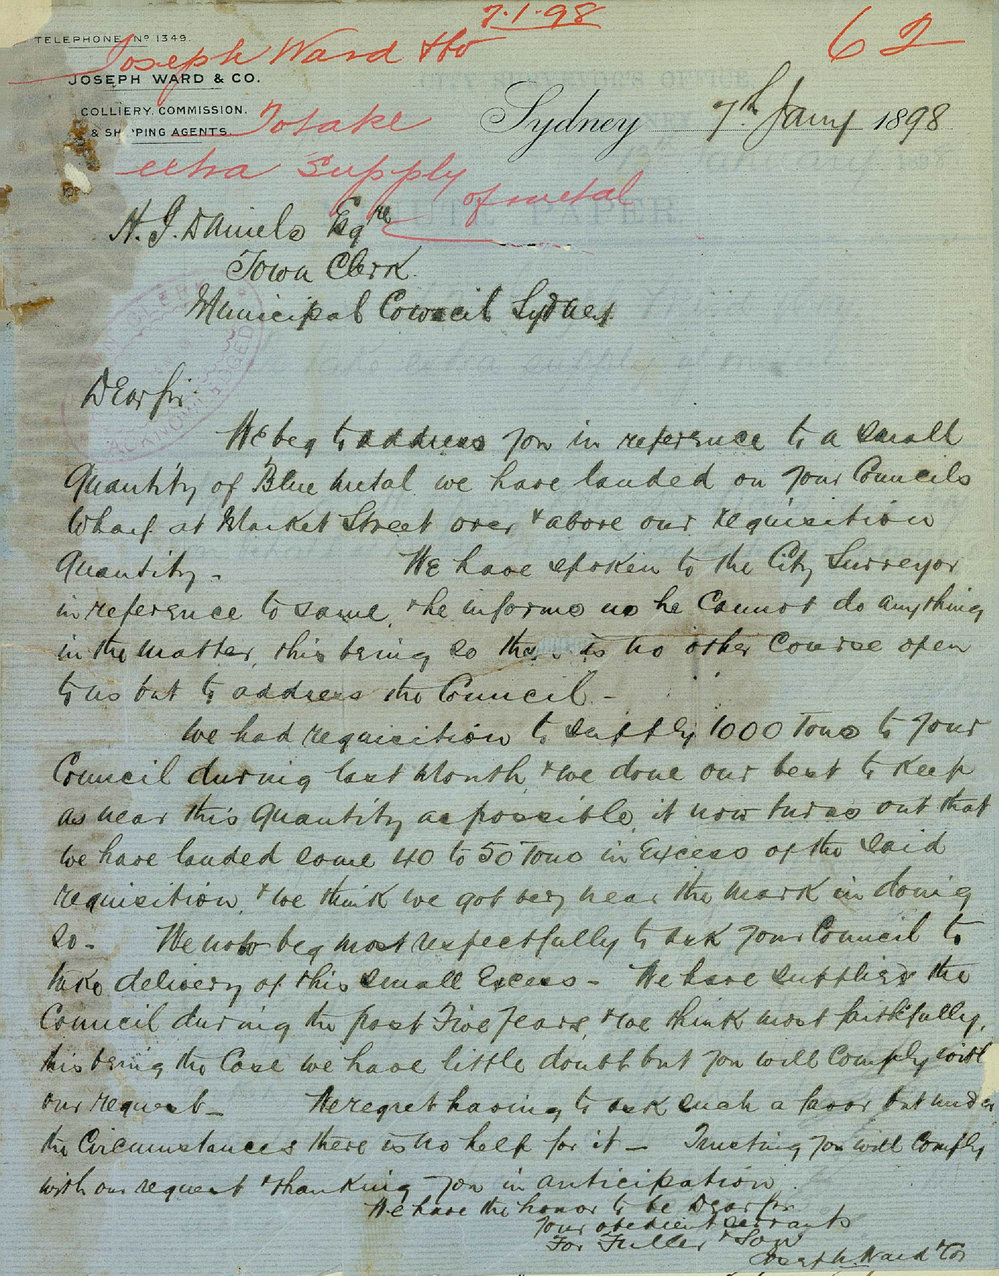 7.1.98
62
TELEPHONE No 1349.
Joseph Ward & Co
JOSEPH WARD & CO.
COLLIERY, COMMISSION,
& SHIPPING AGENTS.
To take
extra supply
of metal
Sydney 7th Jany 1898
H. J. Daniels Esqre
Town Clerk
Municipal Council Sydney
ACKNOWLEDGED
Dear Sir
We beg to address you in reference to a small
Quantity of Blue metal we have landed on your Councils
Wharf at Market Street over & above our requisition
Quantity - We have spoken to the City Surveyor
in reference to same, & he informs us he Cannot do anything
in the matter, this being so there is no other Course open
to us but to address the Council -
We had requisition to supply 1000 Tons to your
Council during last Month & we done our best to keep
as near this Quantity as possible, it now turns out that
we have landed some 40 to 50 Tons in Excess of the said
requisition, & we think we got very near the mark in doing
so - We now beg most respectfully to ask your Council to
take delivery of this small Excess - We have supplied the
Council during the past Five years, & we think most faithfully,
this being the Case we have little doubt but you will Comply with
our request - We regret having to ask such a favor but under
the Circumstances there is no help for it - Trusting you will Comply
with our request & thanking you in anticipation
We have the honor to be Dear Sir
Your obedient servants
For Fuller & Son
Joseph Ward & Co